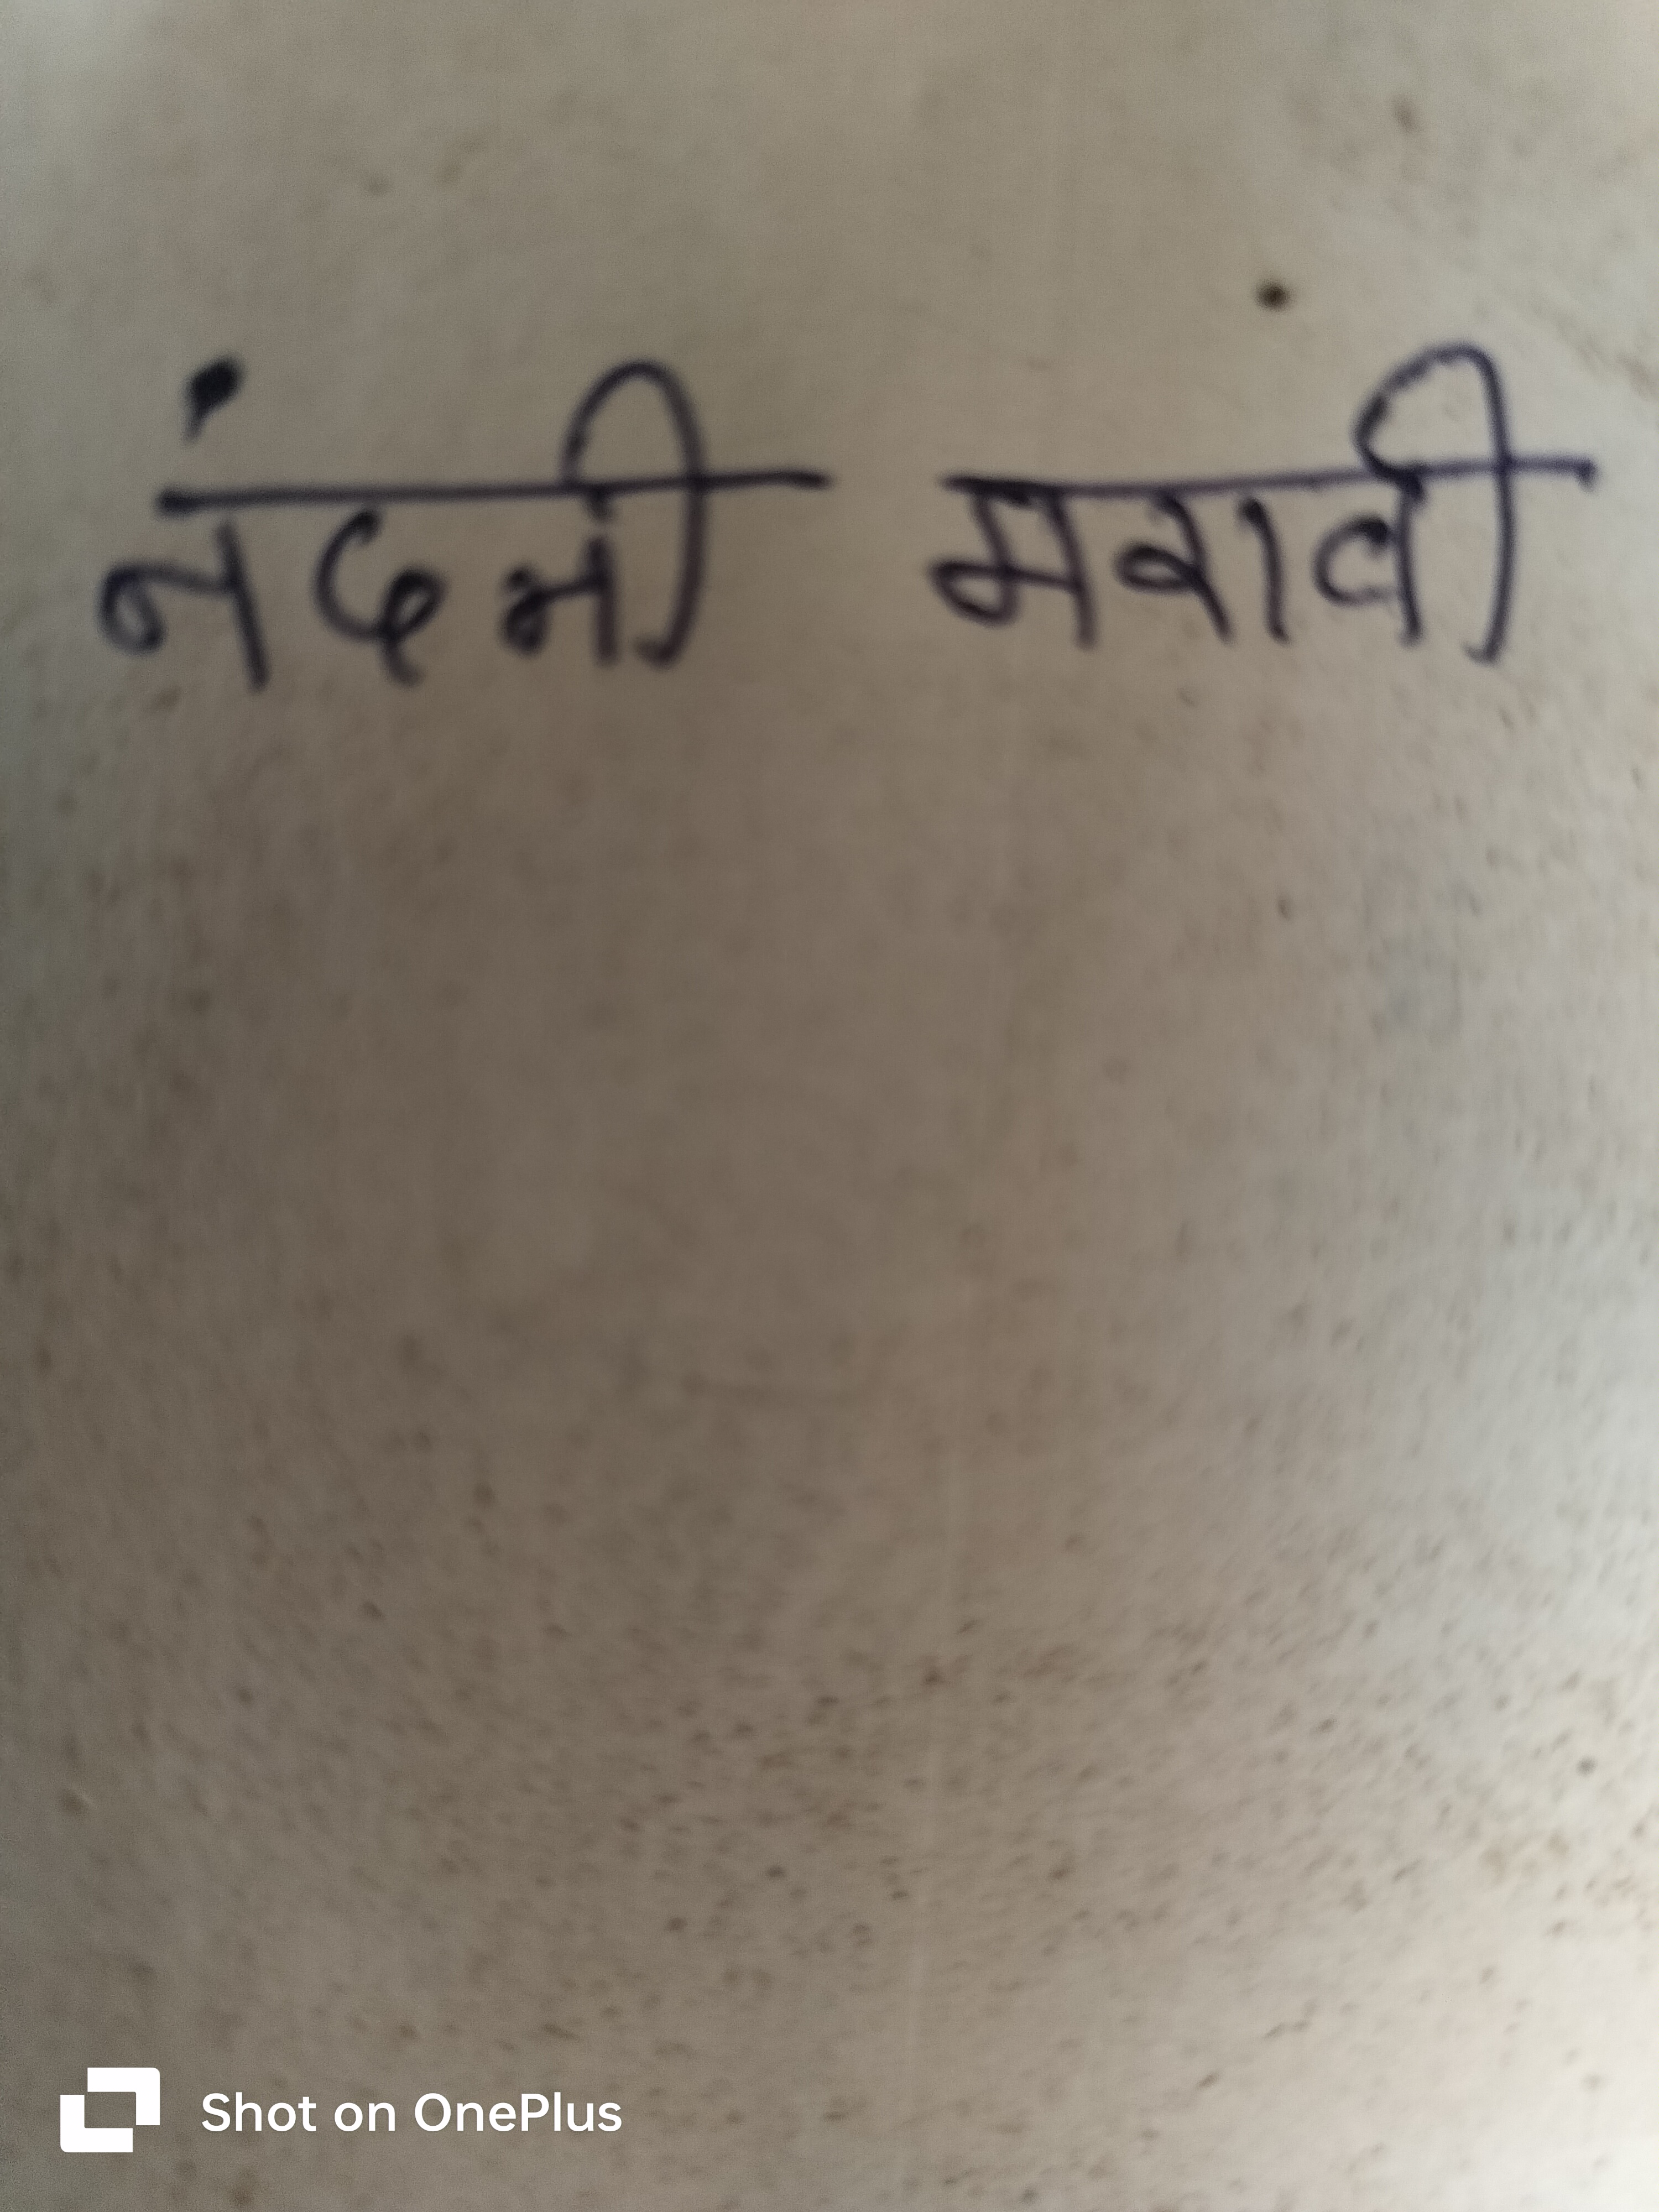 नंदनी मरावी
Shot on OnePlus